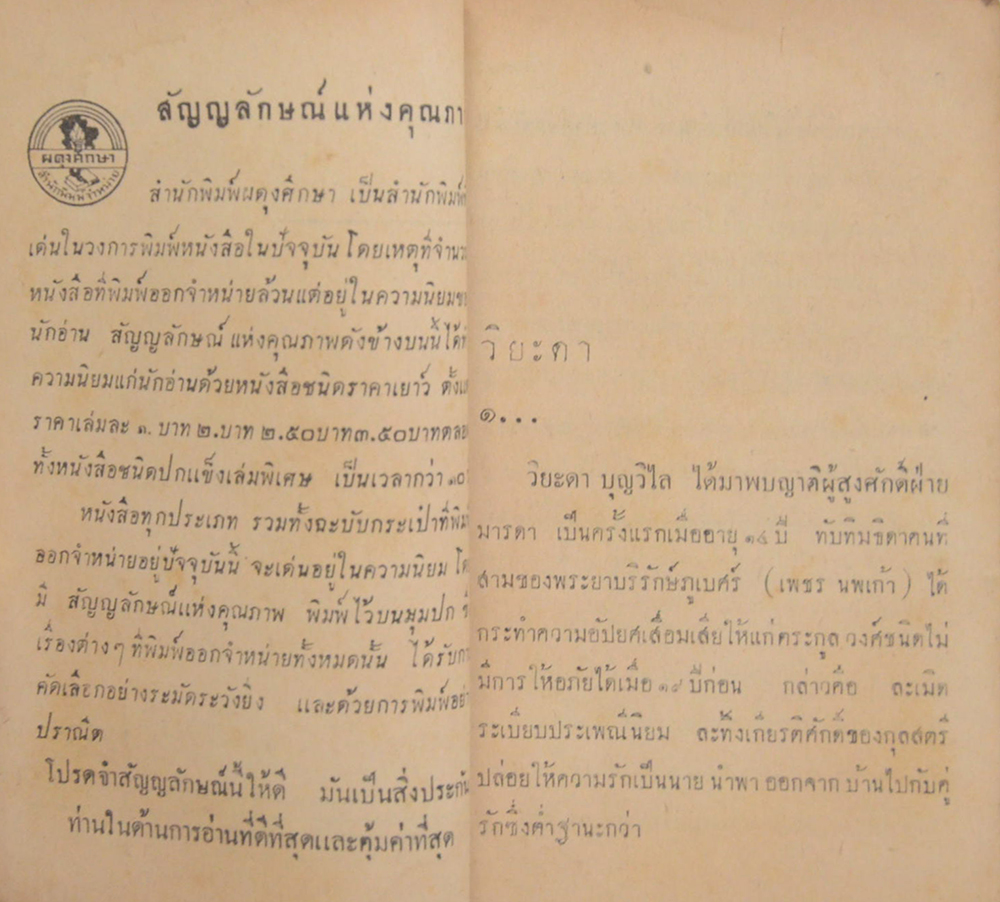 สัญญลักษณ์แห่งคุณภา
ผดุงศึกษา
สำนักพิมพ์จำหน่าย
สำนักพิมพ์ผดุงศึกษา เป็นสำนักพิมพ์
เด่นในวงการพิมพ์หนังสือในปัจจุบัน โดยเหตุที่จำนว
หนังสือที่พิมพ์ออกจำหน่ายล้วนแต่อยู่ในความนิยมขอ
นักอ่าน สัญญลักษณ์ แห่งคุณภาพดังข้างบนนี้ได้
ความนิยมแก่นักอ่านด้วยหนังสือชนิดราคาเยาว์ ตั้งแ
ราคาเล่มละ ๑. บาท ๒.บาท ๒.๕๐บาท๓.๕๐บาทตลอ
ทั้งหนังสือชนิดปกแข็งเล่มพิเศษ เป็นเวลากว่า ๑๐
หนังสือทุกประเภท รวมทั้งฉะบับกระเป๋าที่พิม
ออกจำหน่ายอยู่ปัจจุบันนี้ จะเด่นอยู่ในความนิยม โด
มี สัญญลักษณ์แห่งคุณภาพ พิมพ์ไว้บนมุมปก
เรื่องต่างๆ ที่พิมพ์ออกจำหน่ายทั้งหมดนั้น ได้รับกา
คัดเลือกอย่างระมัดระวังยิ่ง และด้วยการพิมพ์อย่า
ปราณิต
โปรดจำสัญญลักษณ์นี้ให้ดี มันเป็นสิ่งประกัน
ท่านในด้านการอ่านที่ดีที่สุดและคุ้มค่าที่สุด
วิยะดา
๑...
วิยะดา บุญวิไล ได้มาพบญาติผู้สูงศักดิ์ฝ่าย
มารดา เป็นครั้งแรกเมื่ออายุ ๑๔ ปี ทับทิมธิดาคนที่
สามของพระยาบริรักษ์ภูเบศร์ (เพชร นพเก้า) ได้
กระทำความอัปยศเสื่อมเสียให้แก่ตระกูล วงศ์ชนิดไม่
มีการ ให้อภัยได้เมื่อ ๑๙ ปีก่อน กล่าวคือ ละเมิด
ระเบียบประเพณีนิยม ละทิ้งเกียรติศักดิ์ของกุลสตรี
ปล่อยให้ความรักเป็นนาย นำพา ออกจาก บ้านไปกับคู่
รักซึ่งต่ำฐานะกว่า